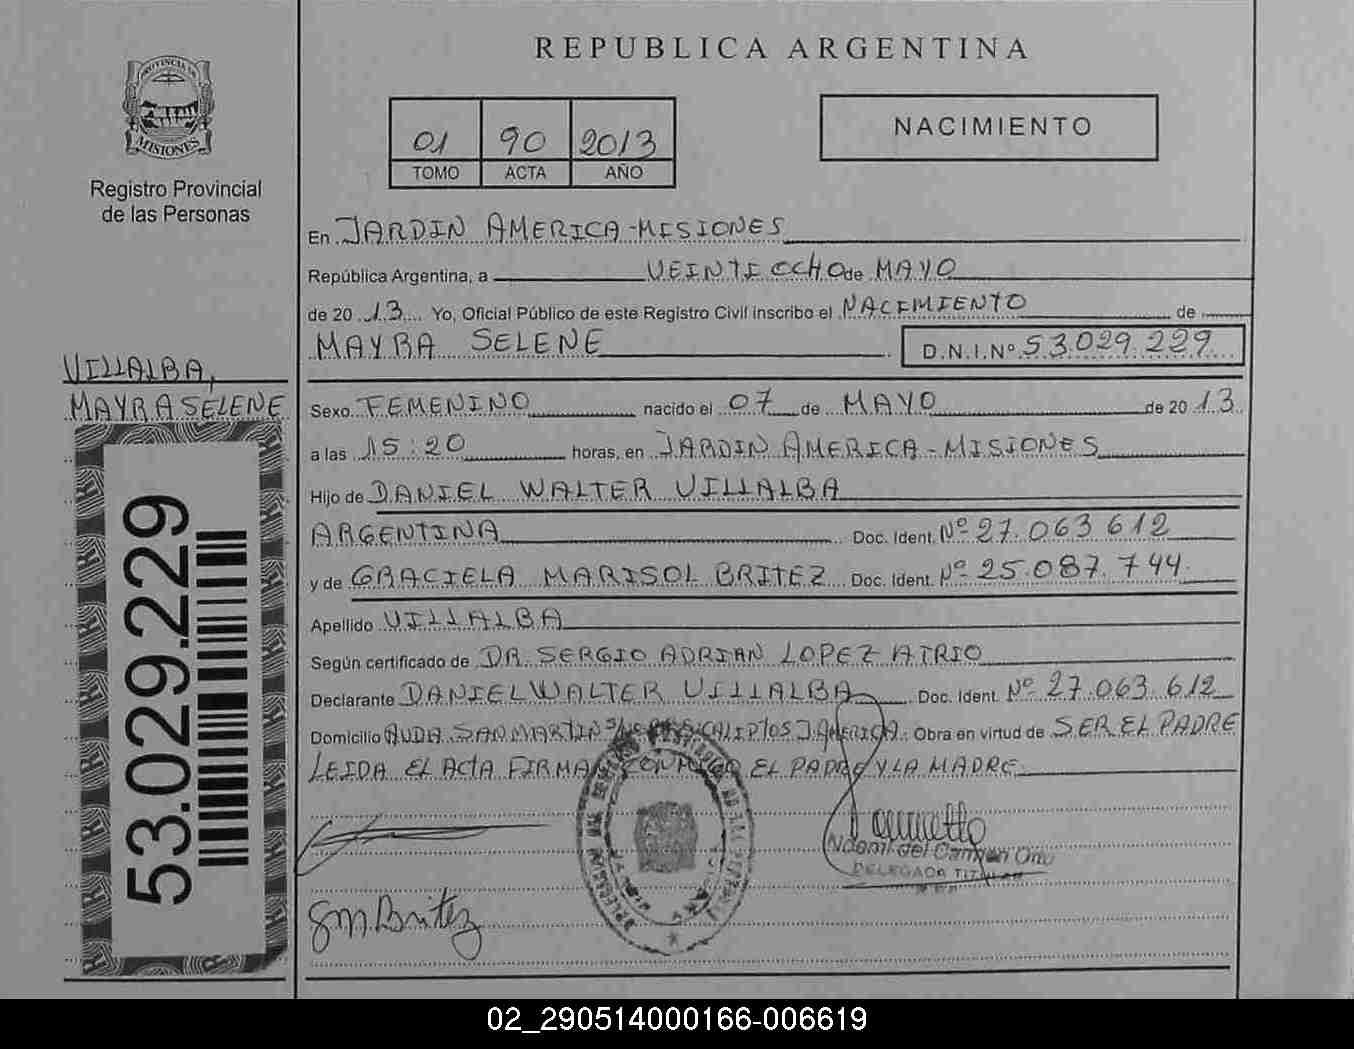 REPUBLICA ARGENTINA
PROVINCIA DE
MISIONES
Registro Provincial
de las Personas
01 90 2013
TOMO ACTA AÑO
NACIMIENTO
En JARDIN AMERICA - MISIONES
República Argentina, a VEINTIOCHO de MAYO
de 2013 Yo, Oficial Público de este Registro Civil inscribo el NACIMIENTO de
MAYRA SELENE D.N.I.Nº 53.029.229
VILLALBA,
MAYRA SELENE
Sexo FEMENINO nacido el 07 de MAYO de 2013
a las 15:20 horas, en JARDIN AMERICA - MISIONES
Hijo de DANIEL WALTER VILLALBA
ARGENTINA Doc. Ident. Nº 27.063.612
y de GRACIELA MARISOL BRITEZ Doc. Ident. Nº 25.087.744
Apellido VILLALBA
Según certificado de DR. SERGIO ADRIAN LOPEZ ATRIO
Declarante DANIEL WALTER VILLALBA Doc. Ident. Nº 27.063.612
Domicilio AVDA. SAN MARTIN S/Nº J. AMERICA. Obra en virtud de SER EL PADRE
LEIDA EL ACTA FIRMA CONMIGO EL PADRE Y LA MADRE
53.029.229
Noemi del Carmen
DELEGADA TITULAR
GMBritez
02_290514000166-006619